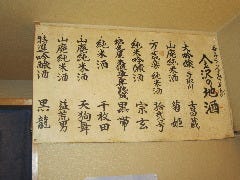 金沢の地酒
大吟醸 手取川 吉田蔵
山廃純米酒 菊姫
純米吟醸酒 宗玄
黒帯
純米酒 千枚田
山廃純米酒 天狗舞
山廃純米酒 益荒男
特選吟醸酒 黒龍